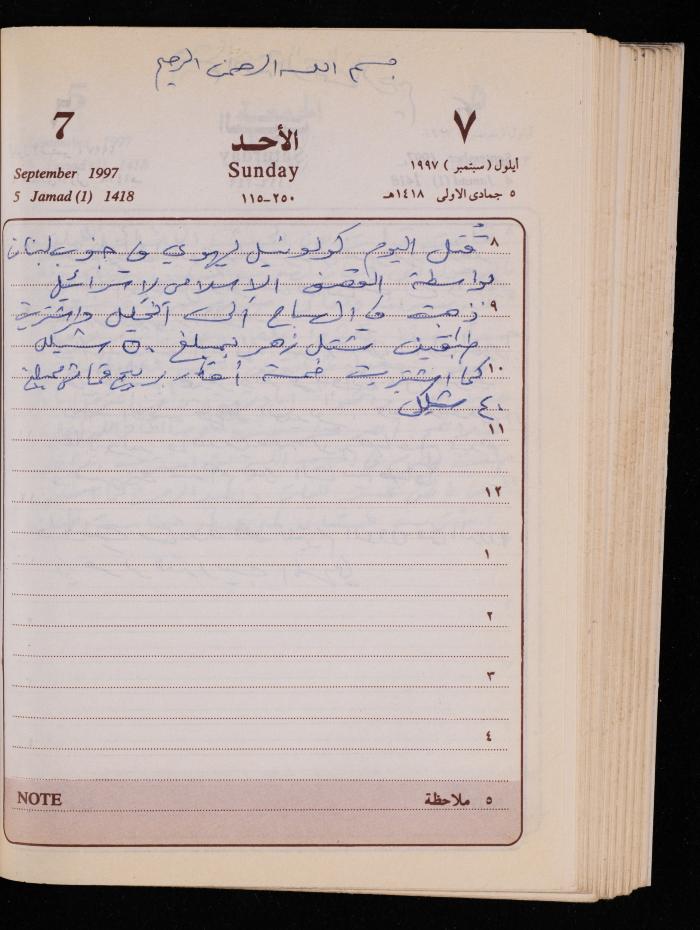 بسم الله الرحمن الرحيم
7 الأحد ٧
September 1997 Sunday ايلول ( سبتمبر ) ١٩٩٧
5 Jamad (1) 1418 ٢٥٠-١١٥ ٥ جمادى الاولى ١٤١٨هـ
٨ قتل اليوم كولونيل يهودي في جنوب لبنان
بواسطة القصف الإسلامي لإسرائيل
٩ ذهبت في الصباح إلى الخليل واشتريت
طبقين شتل زهر بمبلغ ٥٠ شيكل
١٠ كما اشتريت خمسة أمتار
٤٠ شيكل
١١
١٢
١
٢
٣
٤
NOTE ٥ ملاحظة